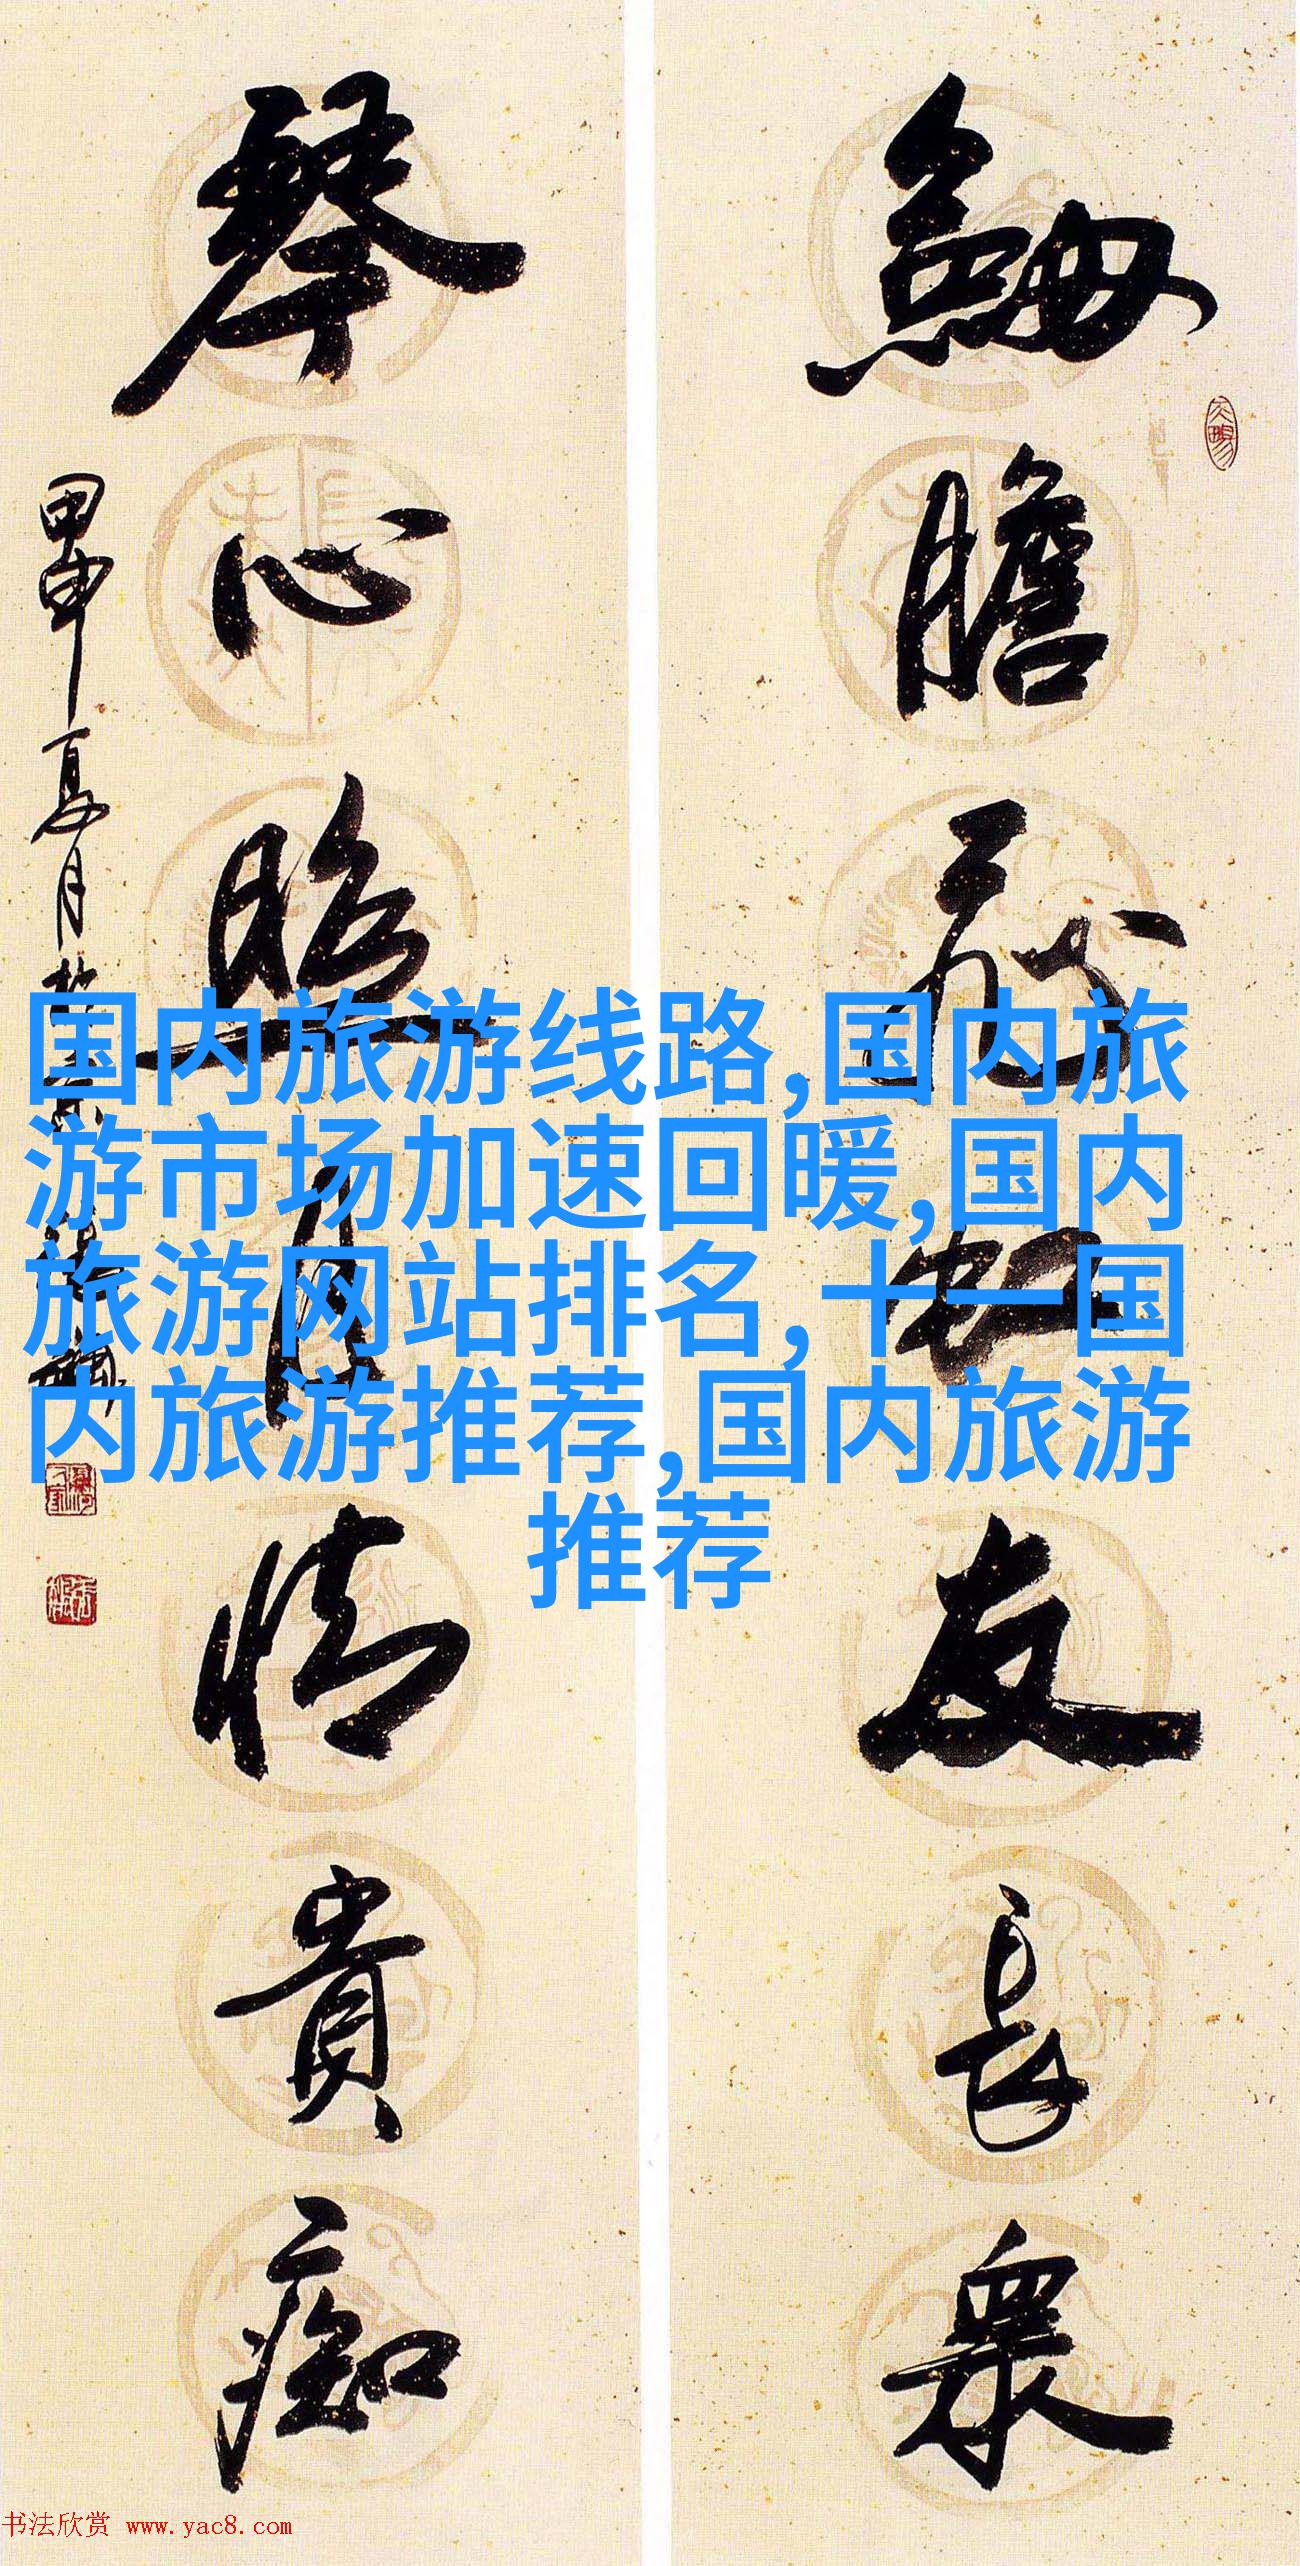 劍膽虹友長眾
琴心照月情貴痴
甲申夏月
国内旅游线路,国内旅
游市场加速回暖,国内
旅游网站排名,十一国
内旅游推荐,国内旅游
推荐
书法欣赏 www.yac8.com